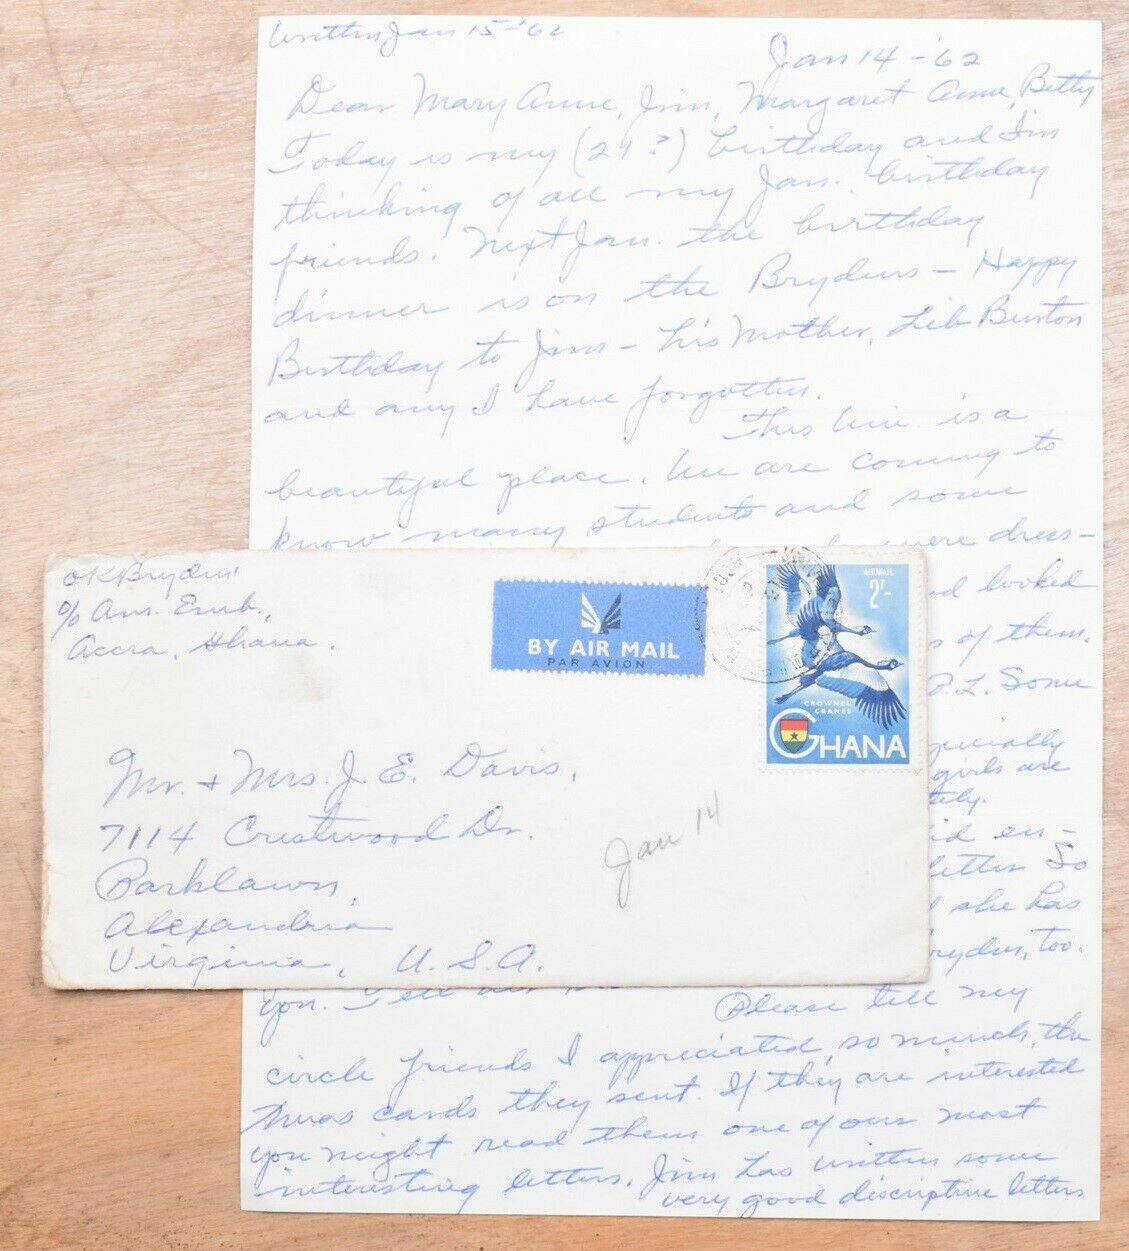 Written Jan 15-'62
Jan 14-'62
Dear Mary Anne, Jim, Margaret Anne, Betty
Today is my (29?) birthday and I'm
thinking of all my Jan. birthday
friends. Next Jan. the birthday
dinner is on the Brydens - Happy
Birthday to Jim - his Mother, Lib Burton
and any I have forgotten.
This Univ. is a
beautiful place. We are coming to
know many students and some
were dress-
looked
of them.
P.L. Some
specially
girls are
en-
letter. So
she has
Brydens, too.
you. Tell
Please tell my
circle friends I appreciated, so much, the
Xmas cards they sent. If they are interested
you might read them one of our most
interesting letters. Jim has written some
very good discriptive letters
OK Bryden
c/o Am. Emb.,
Accra, Ghana.
BY AIR MAIL
PAR AVION
AIRMAIL
2/-
CROWNED
CRANES
GHANA
Mr. + Mrs. J. E. Davis,
7114 Crestwood Dr.
Parklawn,
Alexandria
Virginia, U.S.A.
Jan 14